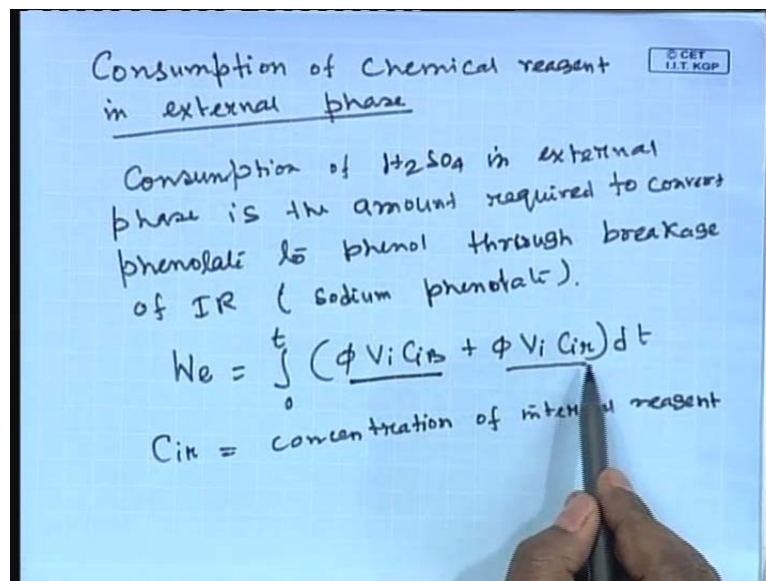 Consumption of Chemical reagent
in external phase
© CET
I.I.T. KGP
Consumption of H2SO4 in external
phase is the amount required to convert
phenolate to phenol through breakage
of IR ( sodium phenolate).
We = ∫₀ᵗ (φ Vi CiB + φ Vi Cir) dt
Cir = concentration of internal reagent